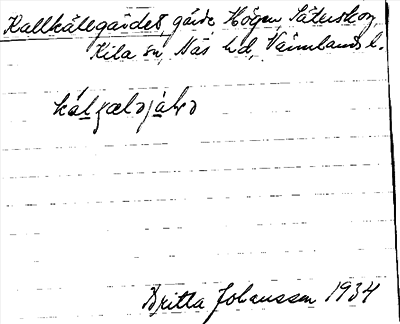 Kallkällegärdet, gärde Högen, Säterskog,
Kila sn, Näs hd, Värmlands l.
Britta Johansson 1934